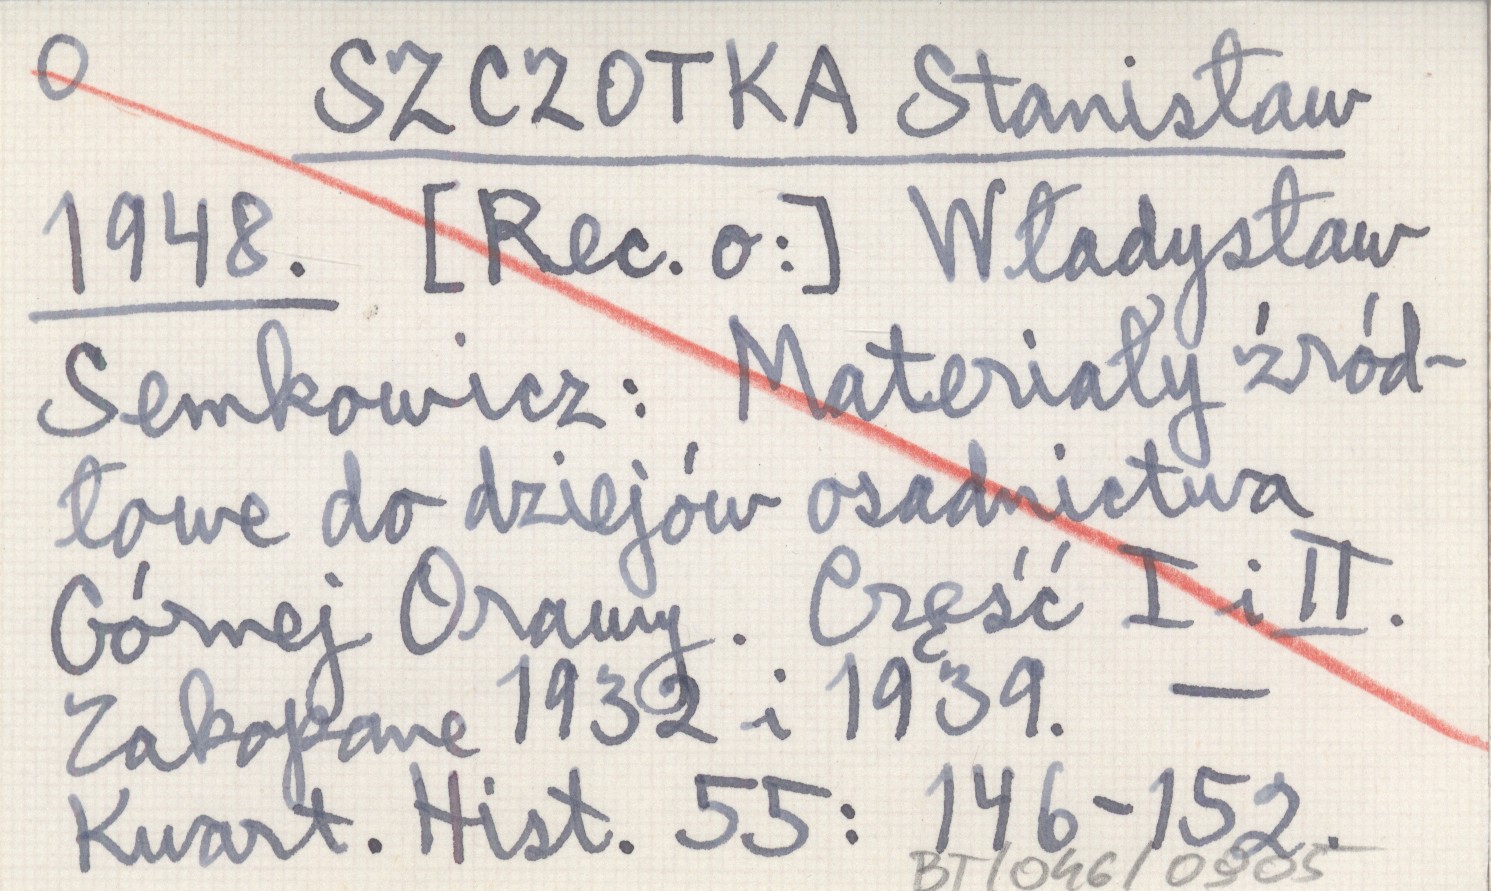 O SZCZOTKA Stanisław
1948. [Rec. o:] Władysław
Semkowicz: Materiały źród-
łowe do dziejów osadnictwa
Górnej Orawy. Część I i II.
Zakopane 1932 i 1939. —
Kwart. Hist. 55: 146-152.
BT/046/0905